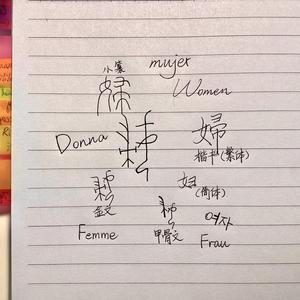 小篆
mujer
婦
Women
Donna
婦
婦
楷书(繁体)
婦
妇
金文
(简体)
婦
여자
Femme
甲骨文
Frau